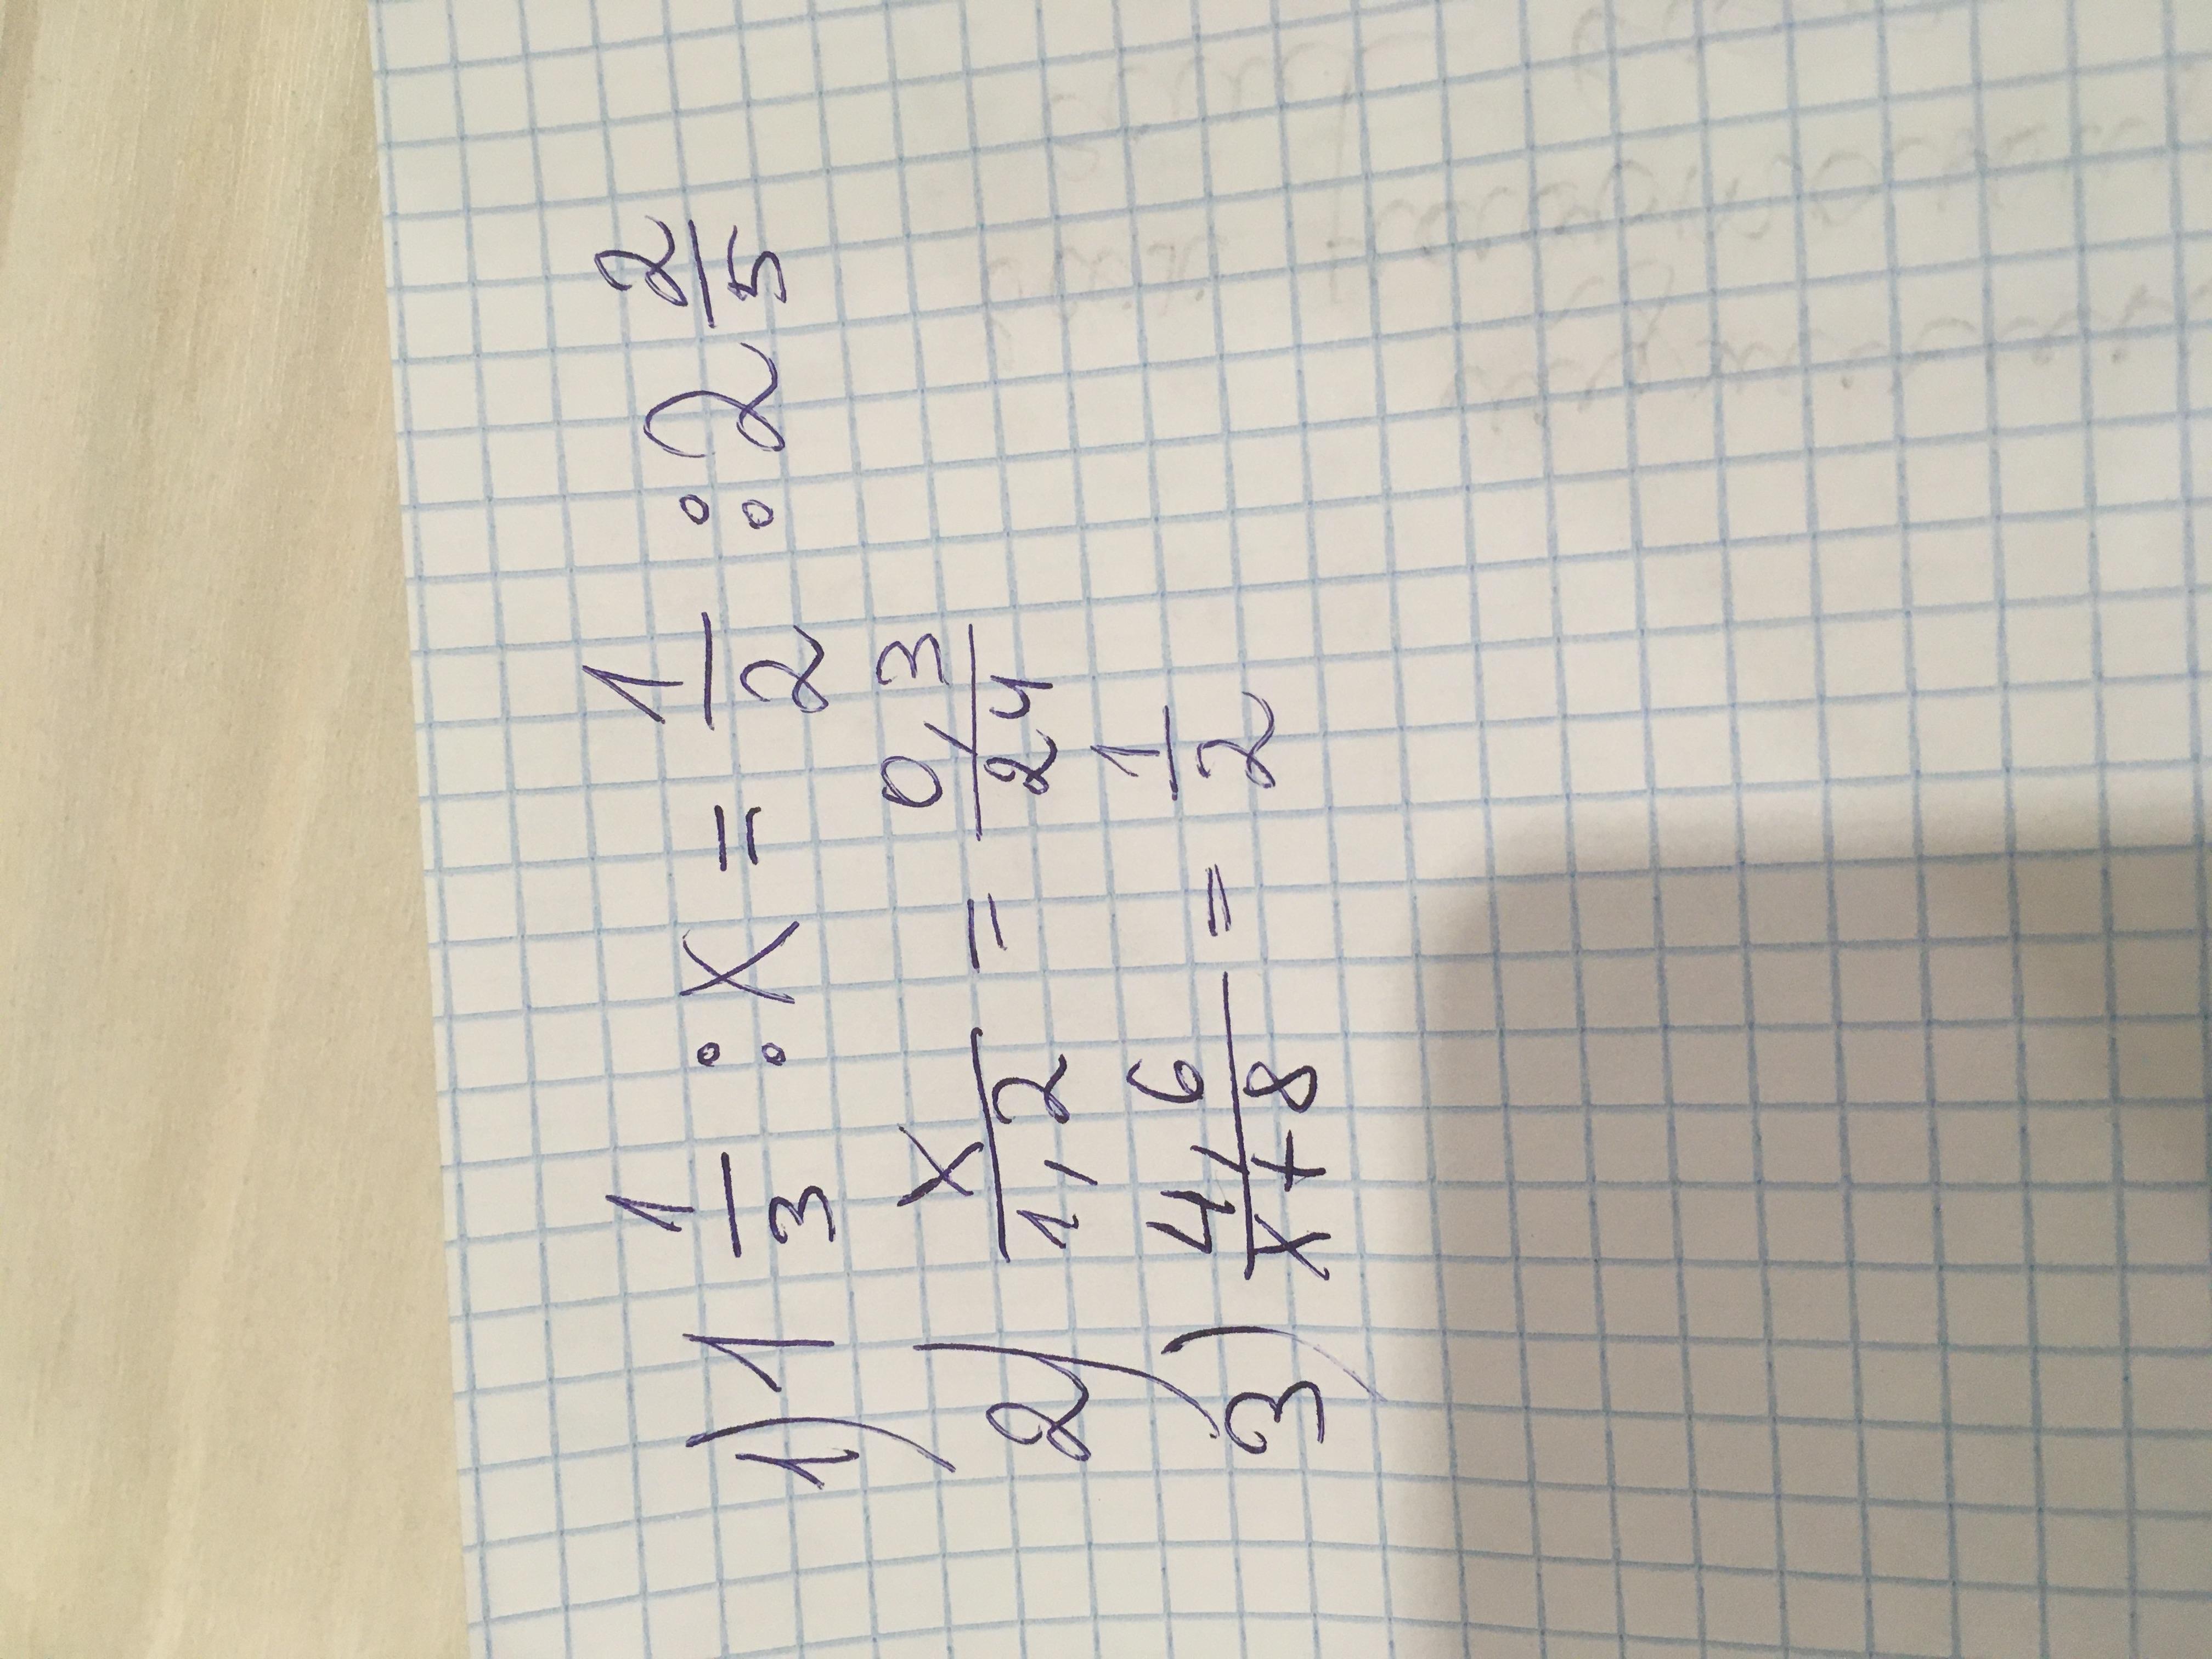 1) 1 1/3 : x = 1/2 : 2 2/5
2) x/1,2 = 0,3/24
3) 4,6/x+8 = 1/2